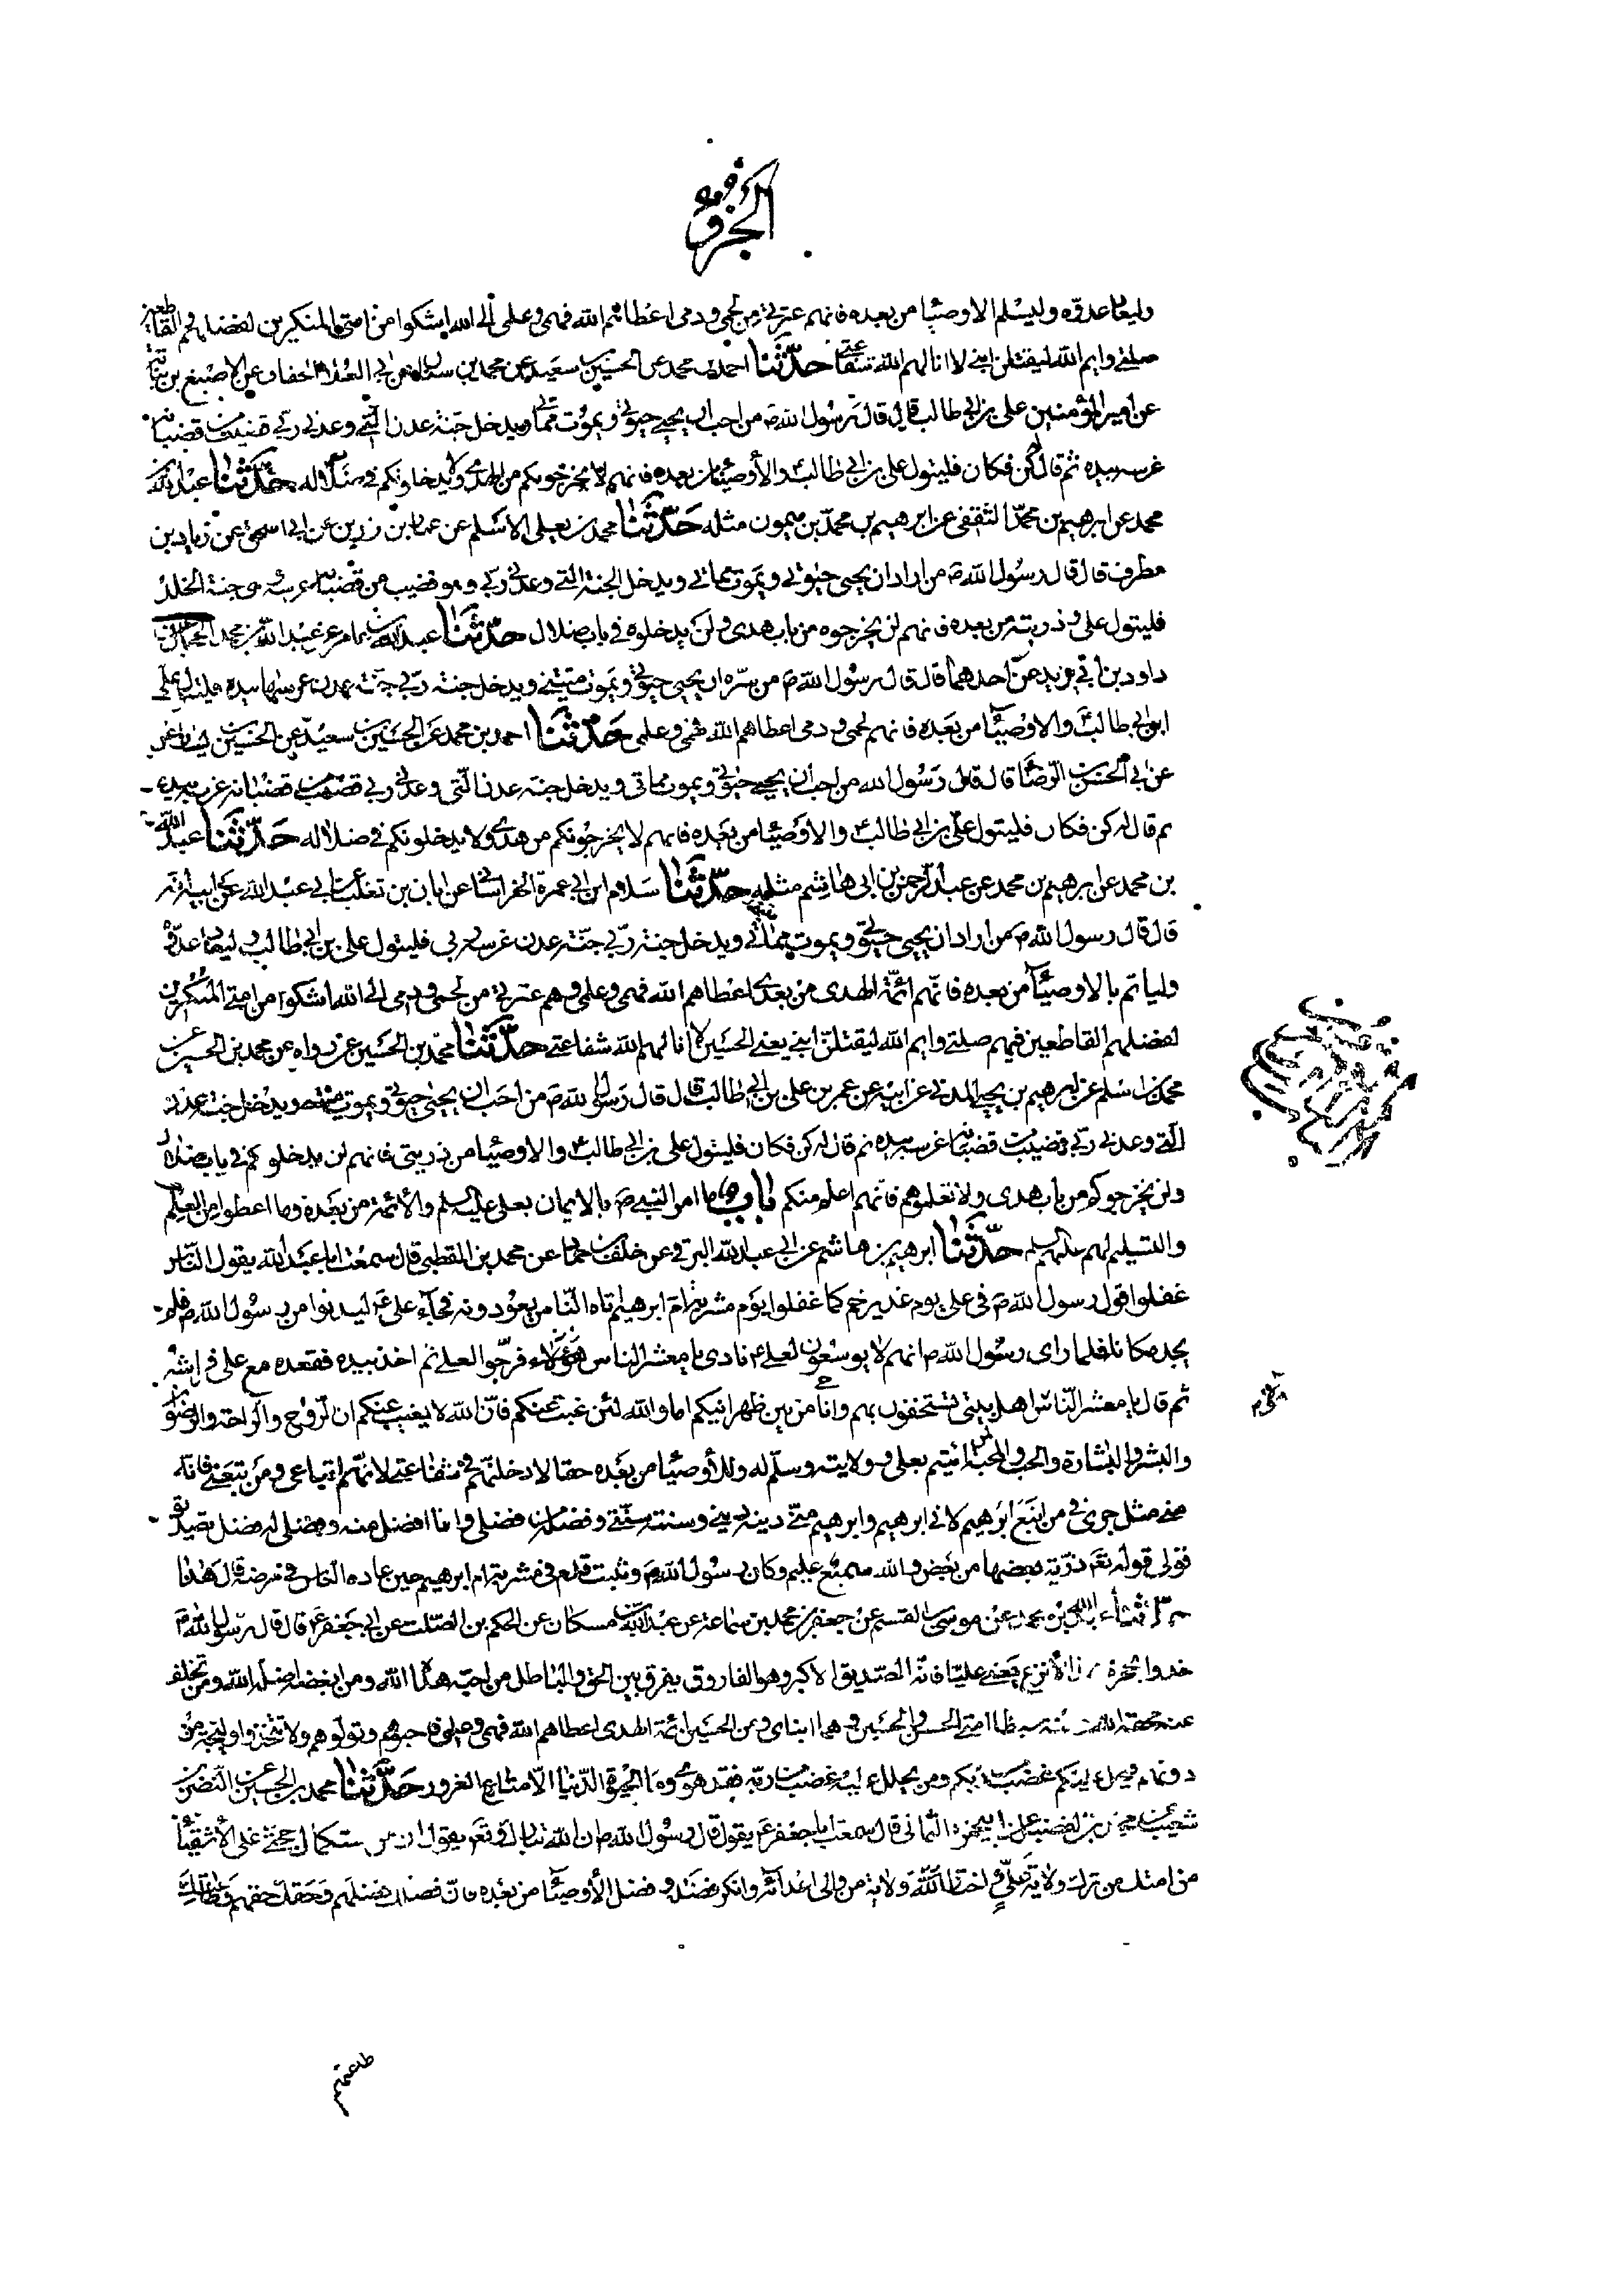 الجزؤ
وليعاد عدوّه وليسلم الاوصيا من بعده فانهم عترتي من لحمي ودمي اعطاهم الله فهمي وعلمي الى الله اشكوا من امتي المنكرين لفضلهم القاطعين
صلتي وايم الله ليقتلن ابني لا انالهم الله شفاعتي حدّثنا احمد بن محمد عن الحسين بن سعيد عن محمد بن عن ابي العلاء الخفاف عن الاصبغ بن نباتة
عن امير المؤمنين على بن ابى طالب قال قال رسول الله ص من احب ان يحيى حيوتي ويموت مماتي ويدخل جنة عدن التي وعدني ربي قضيب من قضبانه
غرسه بيده ثم قال له كن فكان فليتول على بن ابى طالب ع والأوصيا من بعده فانهم لا يخرجونكم من الهدى ولا يدخلونكم في ضلاله حدّثنا عبد الله بن
محمد عن ابرهيم بن محمد الثقفى عن ابرهيم بن محمد بن ميمون مثله حدّثنا محمد بن يعلى الاسلم عن عمار بن زرين عن ابى اسحق عن زياد بن
مطرف قال قال رسول الله ص من اراد ان يحيى حيوتي ويموت مماتي ويدخل الجنة التي وعدني ربي وهو قضيب من قضبانه غرسه وهى جنة الخلد
فليتول على وذريته من بعده فانهم لن يخرجوه من باب هدى ولن يدخلوه في باب ضلال حدّثنا عبد الله بن عامر عن عبد الله بن محمد الحجال عن
داود بن ابى يزيد عن احدهما قال قال رسول الله ص من سرّه ان يحيى حيوتي ويموت ميتتي ويدخل جنة ربي جنة عدن غرسها بيده فليتول على
ابن ابى طالب ع والاوصيا من بعده فانهم لحمى ودمى اعطاهم الله فهمي وعلمي حدّثنا احمد بن محمد عن الحسين بن سعيد عن الحسين بن
عن ابي الحسن الرضا قال قال رسول الله من احب ان يحيى حيوتي ويموت مماتي ويدخل جنة عدن التي وعدني ربي قضيب من قضبانه غرسه بيده
ثم قال له كن فكان فليتول على بن ابى طالب ع والاوصيا من بعده فانهم لا يخرجونكم من هدى ولا يدخلونكم في ضلاله حدّثنا عبد الله
بن محمد عن ابرهيم بن محمد عن عبد الرحمن بن ابى هاشم مثله حدّثنا سلام ابن ابى عمرة الخراساني عن ابان بن تغلب عن ابى عبد الله عن ابيه
قال قال رسول الله ص من اراد ان يحيى حيوتي ويموت مماتي ويدخل جنة ربي جنة عدن غرسه ربى فليتول على بن ابى طالب وليعاد عدوّه
وليأتم بالاوصيا من بعده فانهم ائمة الهدى من بعدى اعطاهم الله فهمى وعلمى وهم عترتي من لحمى ودمى الى الله اشكوا من امتى المنكرين
لفضلهم القاطعين فيهم صلتي وايم الله ليقتلن ابني يعني الحسين لا انالهم الله شفاعتي حدّثنا محمد بن الحسين عن رواه عن محمد بن الحسين عن
محمد بن اسلم عن ابرهيم بن يحيى المدني عن ابيه عن عمر بن على بن ابى طالب قال قال رسول الله ص من احب ان يحيى حيوتي ويموت ويدخل جنة عدن
التي وعدني ربي قضيب من قضبانه غرسه بيده ثم قال له كن فكان فليتول على بن ابى طالب ع والاوصيا من ذريتى فانهم لن يدخلوكم في باب ضلال
ولن يخرجوكم من باب هدى ولا تعلموهم فانهم اعلم منكم باب ما امر النبي ص بالايمان بعلى عليه السلم والأئمة من بعده وما اعطوا من العلم
والتسليم لهم عليهم السلم حدّثنا ابرهيم بن هاشم عن ابى عبد الله البرقى عن خلف بن حماد عن محمد بن القطبى قال سمعت ابا عبد الله يقول الناس
غفلوا قول رسول الله ص فى على يوم غدير خم كما غفلوا يوم مشربة ام ابرهيم اتاه الناس يعودونه فجاء على ع ليدنوا من رسول الله ص فلم
يجد مكانا فلما راى رسول الله ص انهم لا يوسعون لعلى ع نادى يا معشر الناس هؤلاء فرجوا لعلى ثم اخذ بيده فقعده مع على فراشه
ثم قال يا معشر الناس اهل بيتى تستخفون بهم وانا حي من بين ظهرانيكم اما والله لئن غبت عنكم فان الله لا يغيب عنكم ان الروح والراحة والرضوان
والبشر والبشارة والحب والمحبة لمن ائتم بعلى وولايته وسلم له وللأوصيا من بعده حقا لادخلنهم في شفاعتي لانهم اتباعى ومن تبعني فانه
مني مثل جرى فى من اتبع ابرهيم لانى ابرهيم وابرهيم مني دينه ديني وسنته سنتي وفضله فضلى وانا افضل منه وفضلى له فضل تصديق
قولى قوله تعالى ذرية بعضها من بعض والله سميع عليم وكان رسول الله ص وثبت قدمه في مشربة ام ابرهيم حين عاده الناس في مرضه قال هذا
حدّثنا عبد الله بن محمد عن موسى بن القسم عن جعفر بن محمد بن سماعة عن عبد الله بن مسكان عن الحكم بن الصلت عن ابى جعفر ع قال قال رسول الله ص
خذوا بحجزة هذا الأنزع يعنى عليا فانه الصديق الاكبر وهو الفاروق يفرق بين الحق والباطل من احبه هداه الله ومن ابغضه اضله الله ومن تخلف
عنه محقه الله ومنه سبطا امتي الحسن والحسين وهما ابناى ومن الحسين ائمة الهدى اعطاهم الله فهمى وعلمى فاحبوهم وتولوهم ولا تتخذوا وليجة من
دونهم فيحل عليكم غضب من ربكم ومن يحلل عليه غضب من ربه فقد هوى وما الحيوة الدنيا الا متاع الغرور حدّثنا محمد بن الحسين عن النضر بن
شعيب عن محمد بن الفضيل عن ابى حمزة الثمالى قال سمعت ابا جعفر ع يقول قال رسول الله ص ان الله تبارك وتعالى يقول ان من استكمال حجتي على الأشقيا
من امتك من ترك ولاية على واختار ولاية من والى اعدائه وانكر فضله وفضل الأوصيا من بعده فان فضلك فضلهم وحقك حقهم وطاعتك
طاعتهم